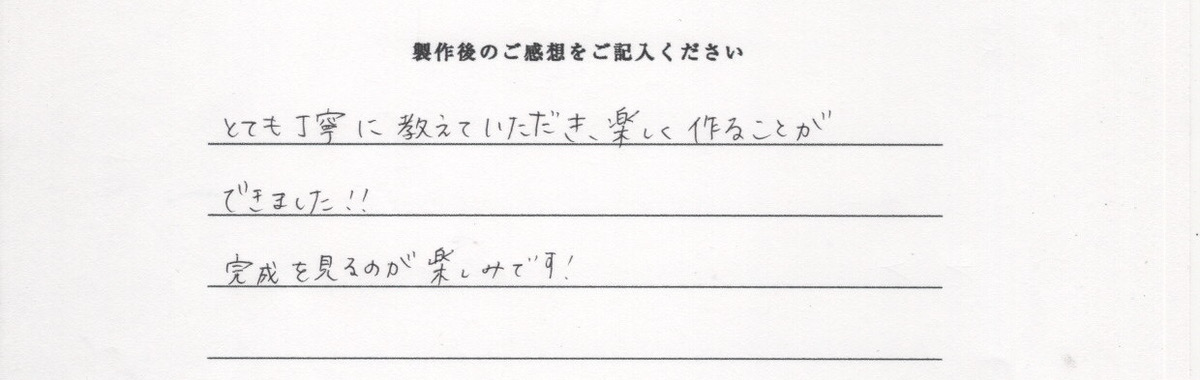 製作後のご感想をご記入ください
とても丁寧に教えていただき、楽しく作ることが
できました!!
完成を見るのが楽しみです!